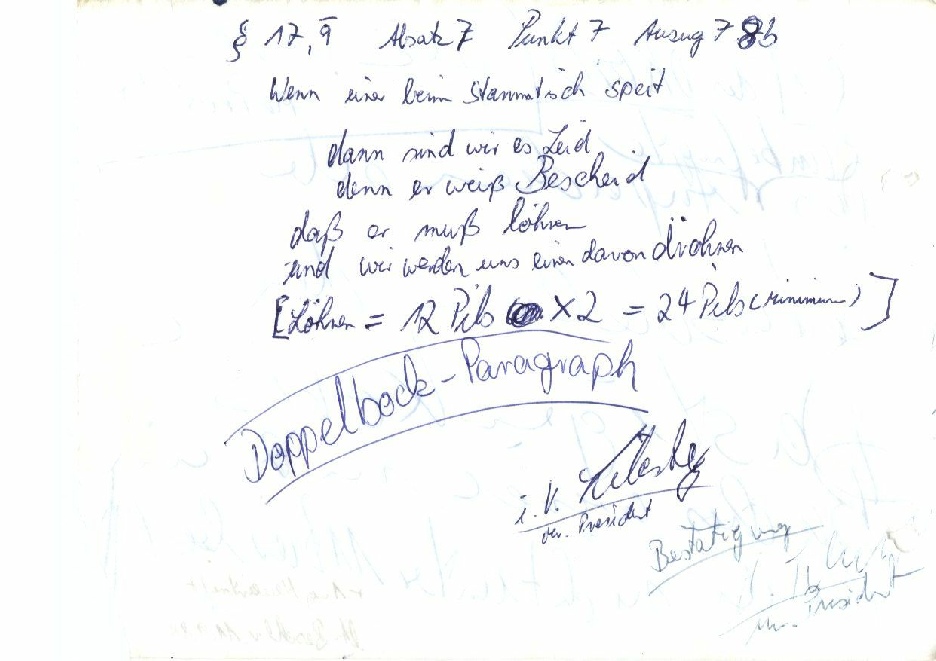 § 17,9̅ Absatz 7 Punkt 7 Auzug 7 8b
Wenn einer beim Stammtisch speit
dann sind wir es Leid
denn er weiß Bescheid
daß er muß löhnen
und wir werden uns einen davon dröhnen
[Löhnen = 12 Pils X 2 = 24 Pils (Minimum) ]
Doppelbock-Paragraph
i.V.
der Präsident
Bestätigung
Präsident